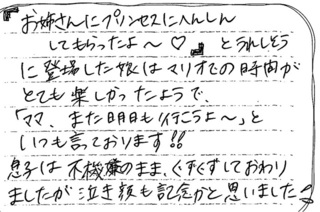 『お姉さんにプリンセスにへんしん
してもらったよ〜♡』とうれしそう
に登場した娘はマリオでの時間が
とても楽しかったようで、
「ママ、また明日も行こうよ〜」と
いつも言っております!!
息子は不機嫌のまま、ぐすぐすしておわり
ましたが泣き顔も記念かと思いました